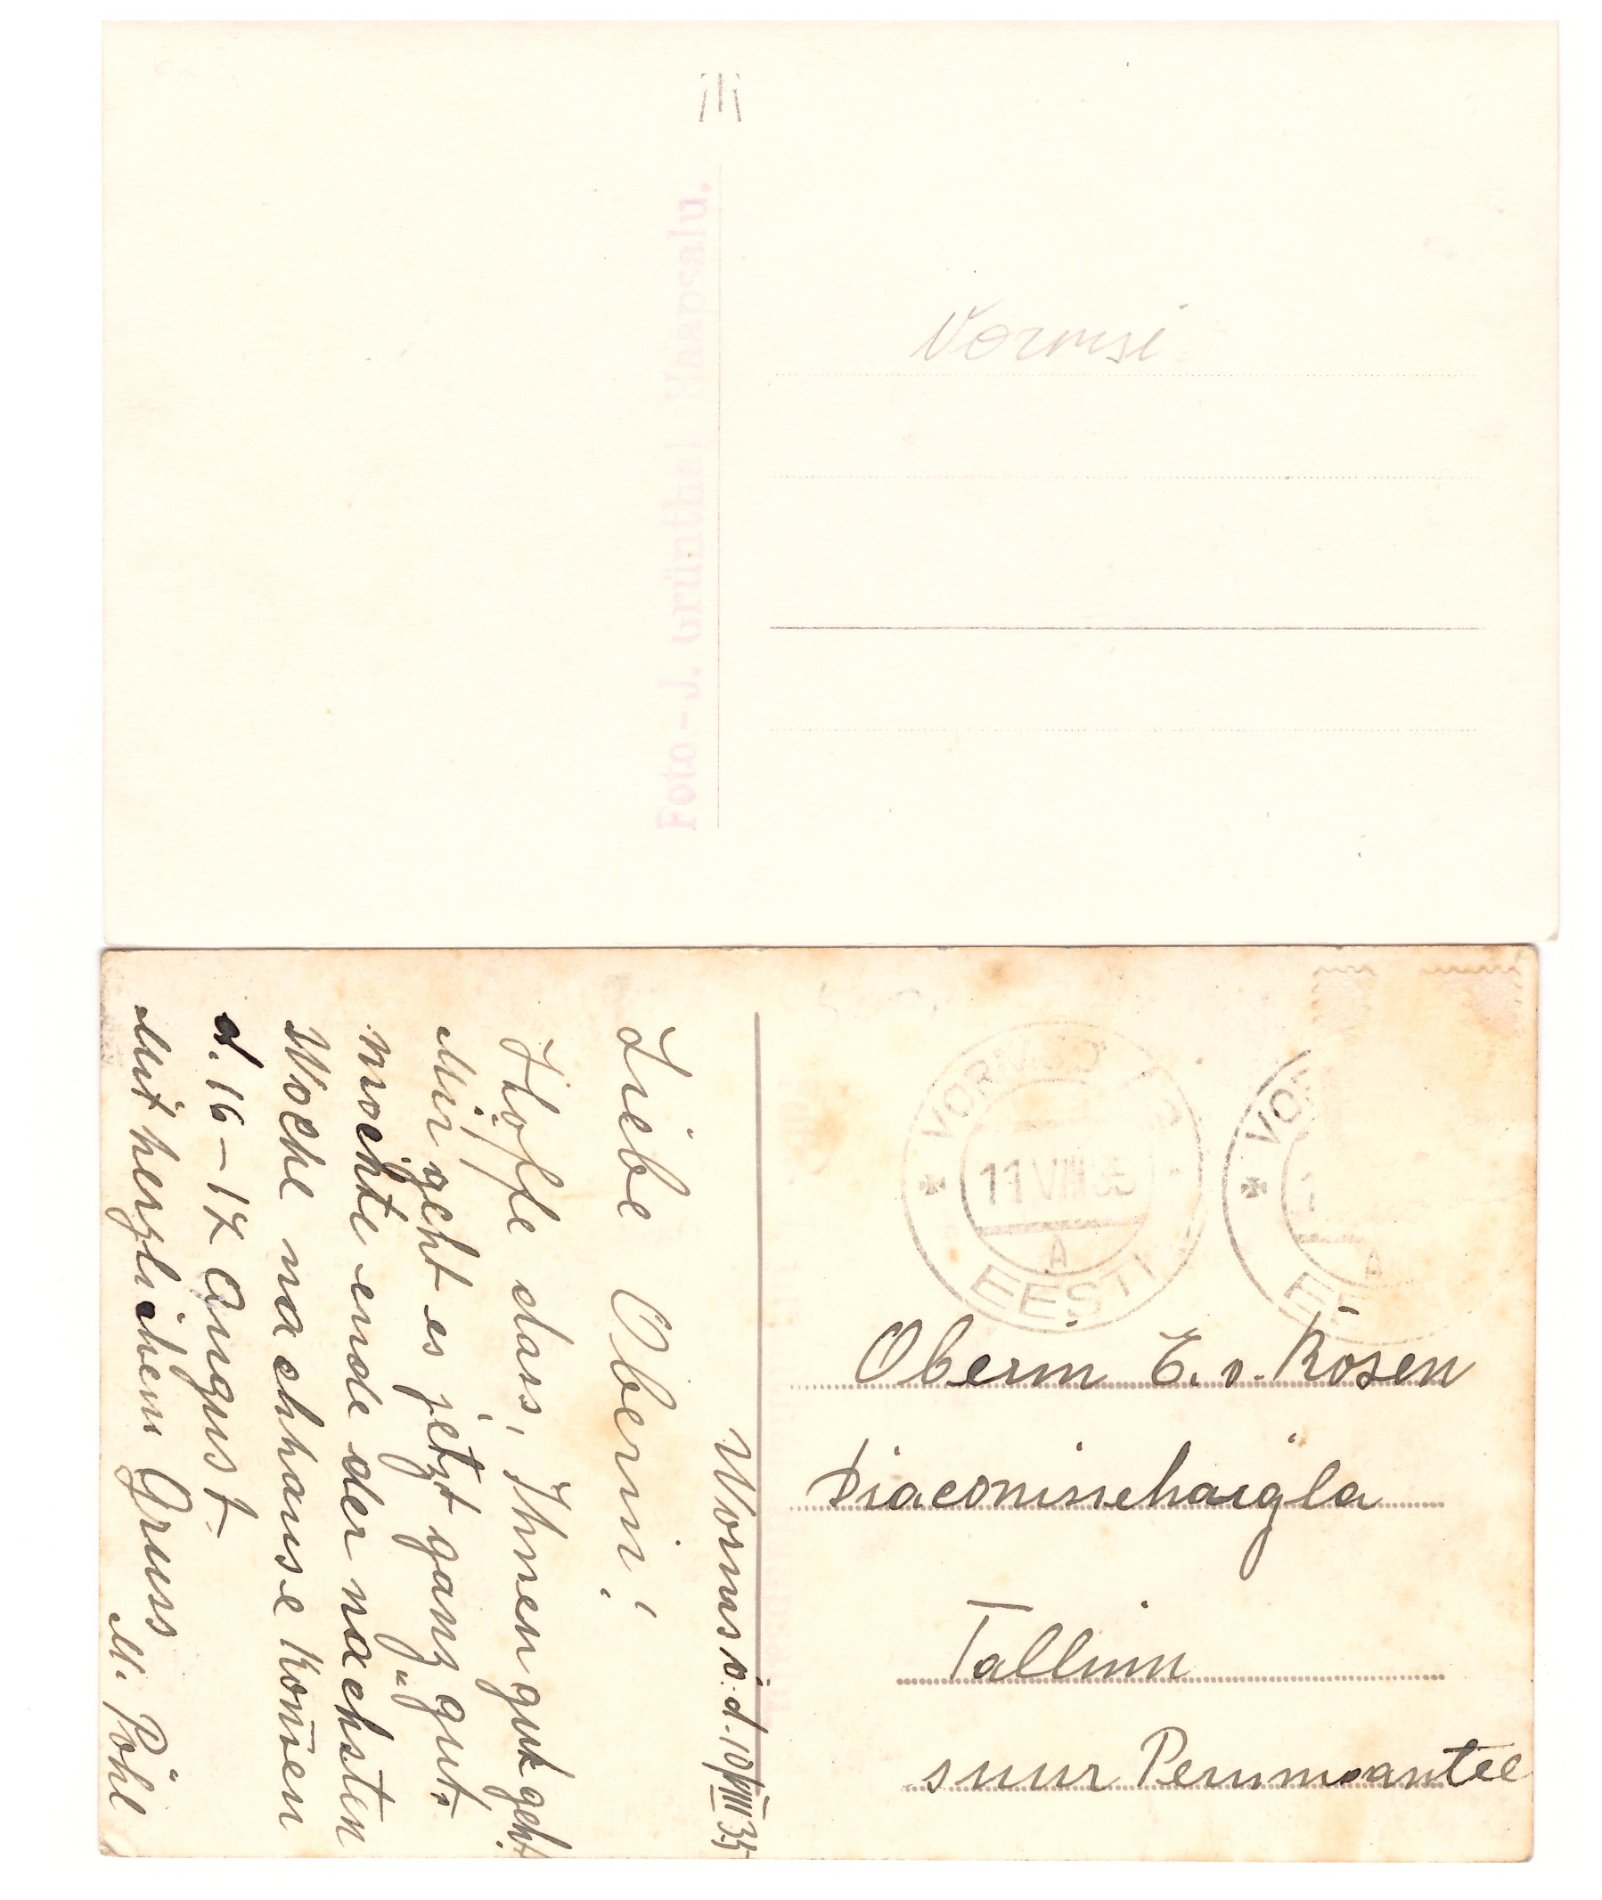 Vormsi
Foto-J. Grünthal Haapsalu.
VORMSI
11 VIII 35
A
EESTI
VO
A
EE
Worms d. d. 10/VIII 35
Liebe Oberin!
Hoffe dass, Ihnen gut geht
Mir geht es jetzt ganz gut.
möchte ende der nächsten
Woche nachhause kom̄en
d. 16-17 August.
Mit herzlichem Gruss
M. Pöhl
Oberin E. v. Rosen
Diaconissehaigla
Tallinn
suur Pernmaantee